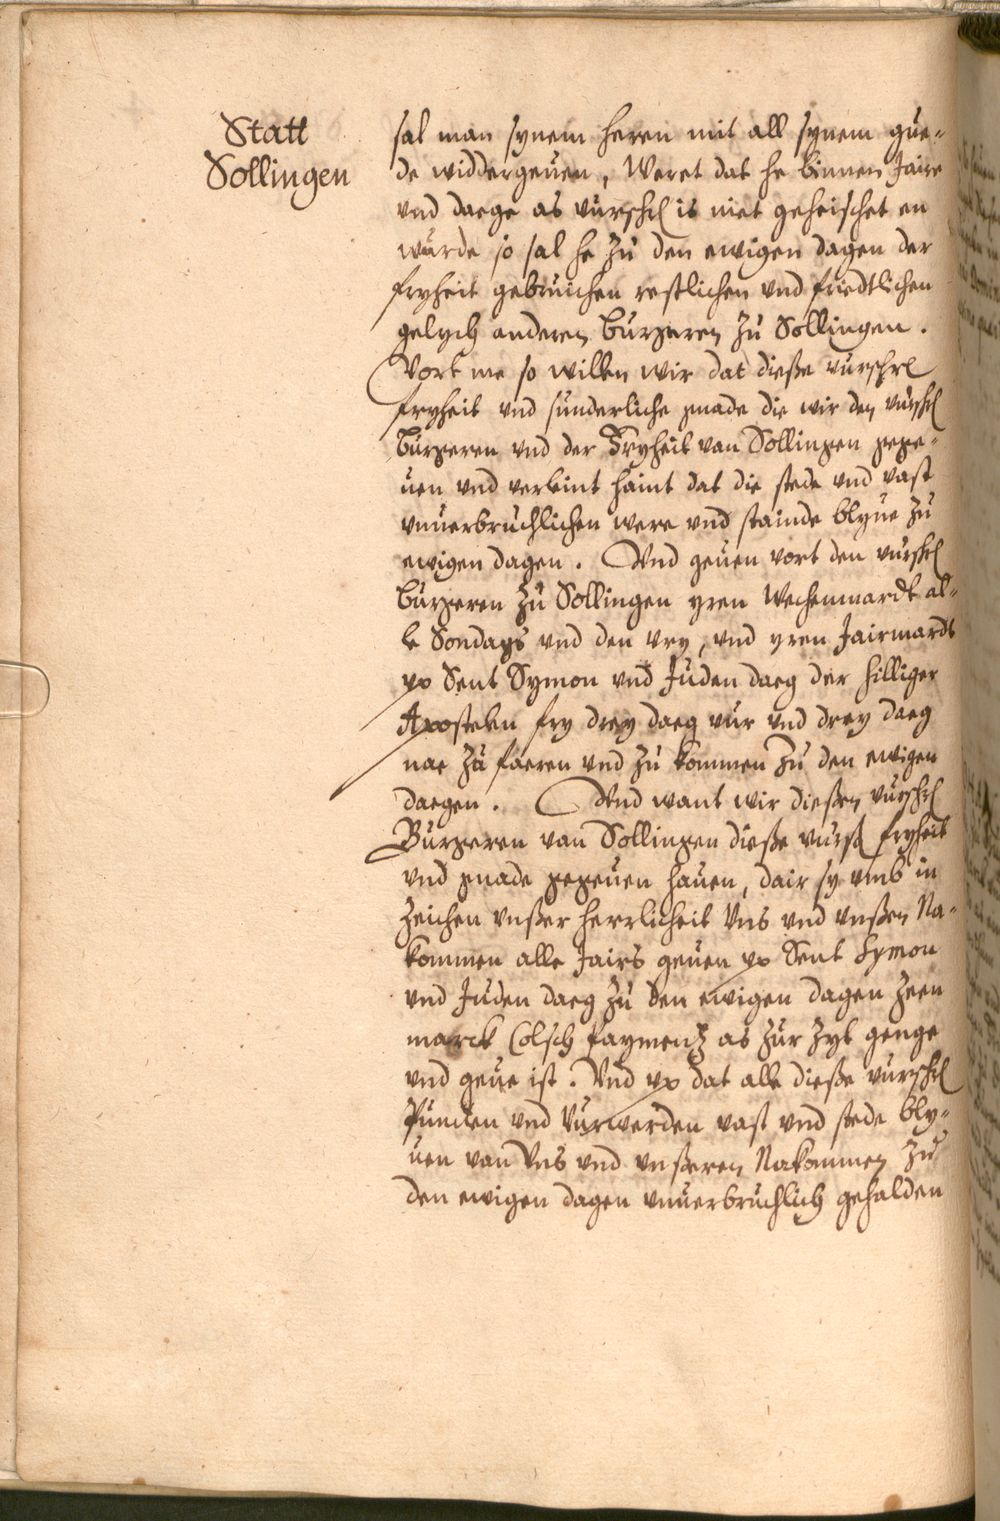 Statt
Sollingen
sal man synem heren mit all synem gue-
de widdergeuen, Weret dat he binnen Jaire
vnd daege as vurschr is niet geheischet en
wurde so sal he zu den ewigen dagen der
fryheit gebruichen restlichen vnd friedtlichen
gelych anderen burgeren zu Sollingen.
Vort me so willen wir dat dieße vurschr
fryheit vnd sunderliche gnade die wir den vurschr
burgeren vnd der Fryheit van Sollingen gege-
uen vnd verleint haint dat die stede vnd vast
vnuerbruchlichen were vnd stainde blyue zu
ewigen dagen. Vnd geuen vort den vurschr
burgeren zu Sollingen yren Wechenmardt al-
le Sondags vnd den vry, vnd yren Jairmardt
vp Sent Symon vnd Juden daeg der hilliger
Apostelen fry drey daeg vur vnd drey daeg
nae zu faeren vnd zu kommen zu den ewigen
daegen. Vnd want wir dießen vurschr
Burgeren van Sollingen dieße vurß fryheit
vnd gnade gegeuen hauen, dair sy vmb in
zeichen vnßer herrlicheit Vns vnd vnßen Na-
kommen alle Jairs geuen vp Sent Symon
vnd Juden daeg zu den ewigen dagen zeen
marck Colsch paymentz as zur zyt genge
vnd geue ist. Vnd vp dat alle dieße vurschr
Puncten vnd Vurwerden vast vnd stede bly-
uen van Vns vnd vnßeren Nakommen zu
den ewigen dagen vnuerbruchlich gehalden